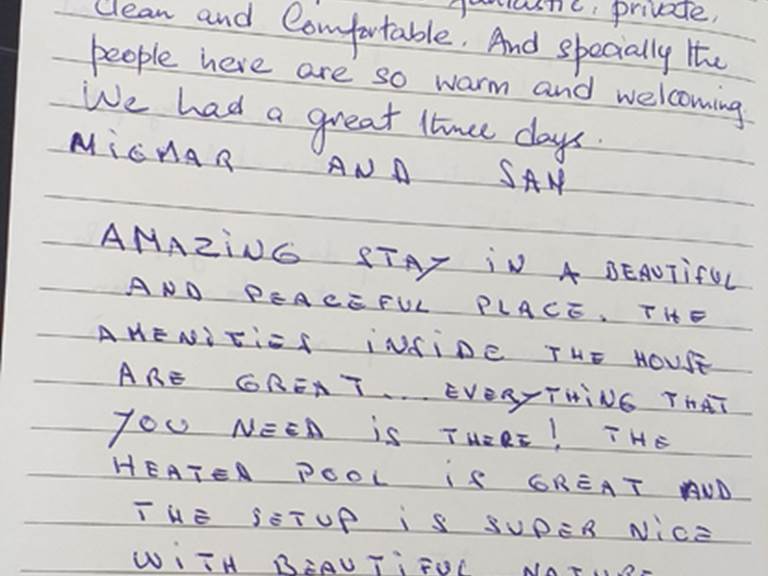 fantastic, private,
Clean and Comfortable. And specially the
people here are so warm and welcoming
We had a great three days.
MIGMAR AND SAM
AMAZiNG STAY iN A BEAUTiFUL
AND PEACEFUL PLACE. THE
AMENiTiES iNSiDE THE HOUSE
ARE GREAT... EVERYTHiNG THAT
YOU NEED iS THERE! THE
HEATED POOL iS GREAT AND
THE SETUP iS SUPER NiCE
WiTH BEAUTiFUL NATURE